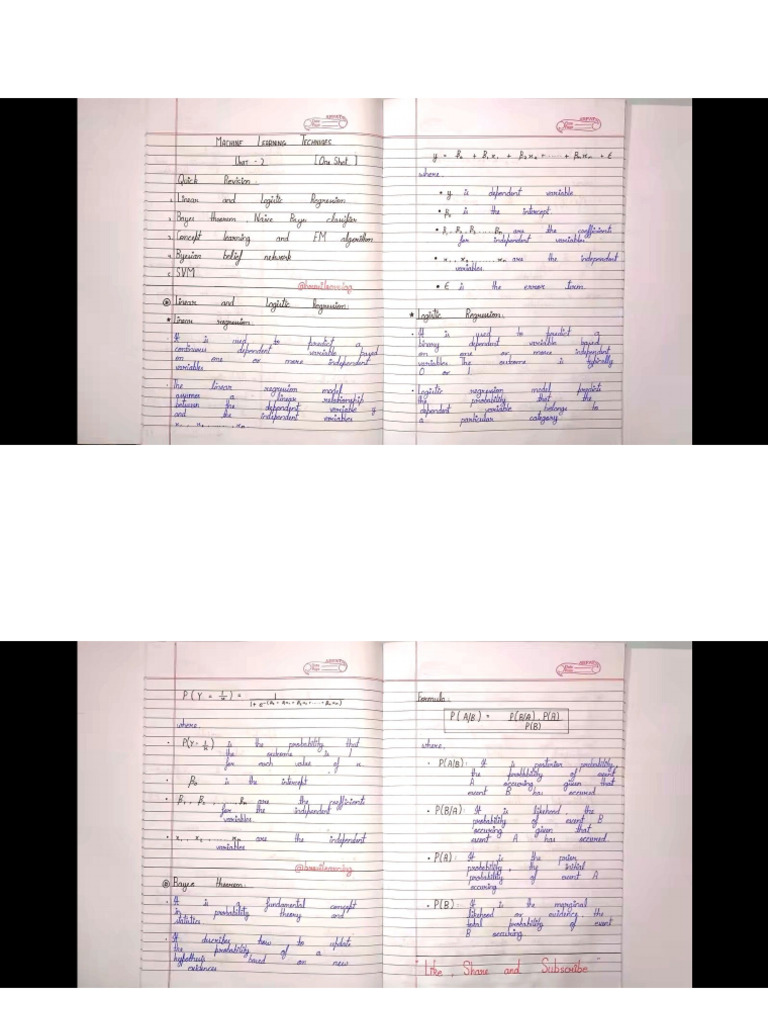 MACHINE LEARNING TECHNIQUES
Unit - 2 [One Shot]
Quick Revision :
1. Linear and Logistic Regression
2. Bayes theorem, Naive Bayes classifier
3. Concept learning and EM algorithm
4. Byesian belief network
5. SVM
@brevilearning
Linear and Logistic Regression:
* Linear regression:
• It is used to predict a
continuous dependent variable based
on one or more independent
variables
• The linear regression model
assumes a linear relationship
between the dependent variable y
and the independent variables
x₁, x₂, ..... xₙ
y = β₀ + β₁x₁ + β₂x₂ + ...... + βₙxₙ + ε
where,
• y is dependent variable.
• β₀ is the intercept.
• β₁, β₂, β₃, ..... βₙ are the coefficients
for independent variables
• x₁, x₂, ..... xₙ are the independent
variables
• ε is the error term.
* Logistic Regression:
• It is used to predict a
binary dependent variable based
on one or more independent
variables. The outcome is typically
0 or 1
• Logistic regression model predict
the probability that the
dependent variable belongs to
a particular category.
P(Y = 1/x) = 1 / 1 + e^-(β₀ + β₁x₁ + β₂x₂ + ..... + βₙxₙ)
where,
• P(Y = 1/x) is the probability that
the outcome is 1
for each value of x.
• β₀ is the intercept
• β₁, β₂, ..... βₙ are the coefficients
for the independent
variables.
• x₁, x₂, ..... xₙ are the independent
variables
Bayes theorem:
• It is a fundamental concept
in probability theory and
statistics
• It describes how to update
the probability of a
hypothesis based on new
evidences
Formula:
P(A/B) = P(B/A) . P(A) / P(B)
where,
• P(A/B) : It is posterior probability,
the probability of event
A occuring given that
event B has occured.
• P(B/A) : It is likehood the
probability of event B
occuring given that
event A has occured.
• P(A) : It is the prior
probability, the initial
probability of event A
occuring.
• P(B) : It is the marginal
likehood or evidence the
total probability of event
B occuring.
"Like, Share and Subscribe"